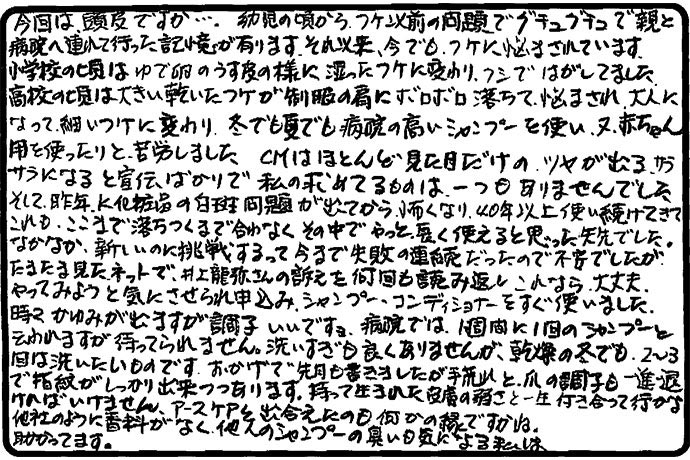 今回は頭皮ですか…。幼児の頃から、フケ以前の問題でグチュグチュで親と
病院へ連れて行った記憶が有ります。それ以来、今でも、フケに悩まされています。
小学校の頃はゆで卵のうす皮の様に、湿ったフケに変わり、クシではがしてました。
高校の頃は大きい乾いたフケが制服の肩にボロボロ落ちて、悩まされ、大人に
なって、細いフケに変わり、冬でも夏でも病院の高いシャンプーを使い、又、赤ちゃん
用を使ったりと、苦労しました。CMはほとんど見た目だけの、ツヤが出る、サラ
サラになると宣伝ばかりで私の求めてるものは、一つも有りませんでした。
そして、昨年、に化粧品の白斑問題が出てから、怖くなり、40年以上使い続けてきて
これも、ここまで落ちつくまで合わなく、その中でやっと、長く使えると思った矢先でした。
なかなか、新しいのに挑戦するって今まで失敗の連続だったので不安でしたが、
たまたま見たネットで、井上龍弥さんの訴えを何回も読み返し、これなら、大丈夫、
やってみようと気にさせられ申込み、シャンプー、コンディショナーをすぐ使いました。
時々かゆみが出ますが調子いいですョ。病院では、1週間に1回のシャンプーと
云われますが待ってられません。洗いすぎも良くありませんが、乾燥の冬でも、2〜3
回は洗いたいものです。おかげで先月も書きましたが手荒れと、爪の調子も一進一退
で指紋がしっかり出来つつあります。持って生まれた皮膚の弱さと一生付き合って行かな
ければいけません、アースケアと出合えたのも何かの縁ですかね。
他社のように香料がなく、他人のシャンプーの臭いも気になる私は、
助かってます。